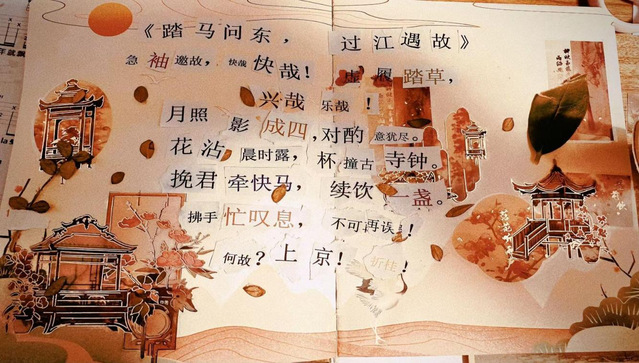 《踏马问东，过江遇故》
急袖邀故，快哉快哉！虚履踏草，
兴哉乐哉！
月照影成四，对酌意犹尽。
花沾晨时露，杯撞古寺钟。
挽君牵快马，续饮一盏。
拂手忙叹息，不可再误！
何故？上京！折桂！